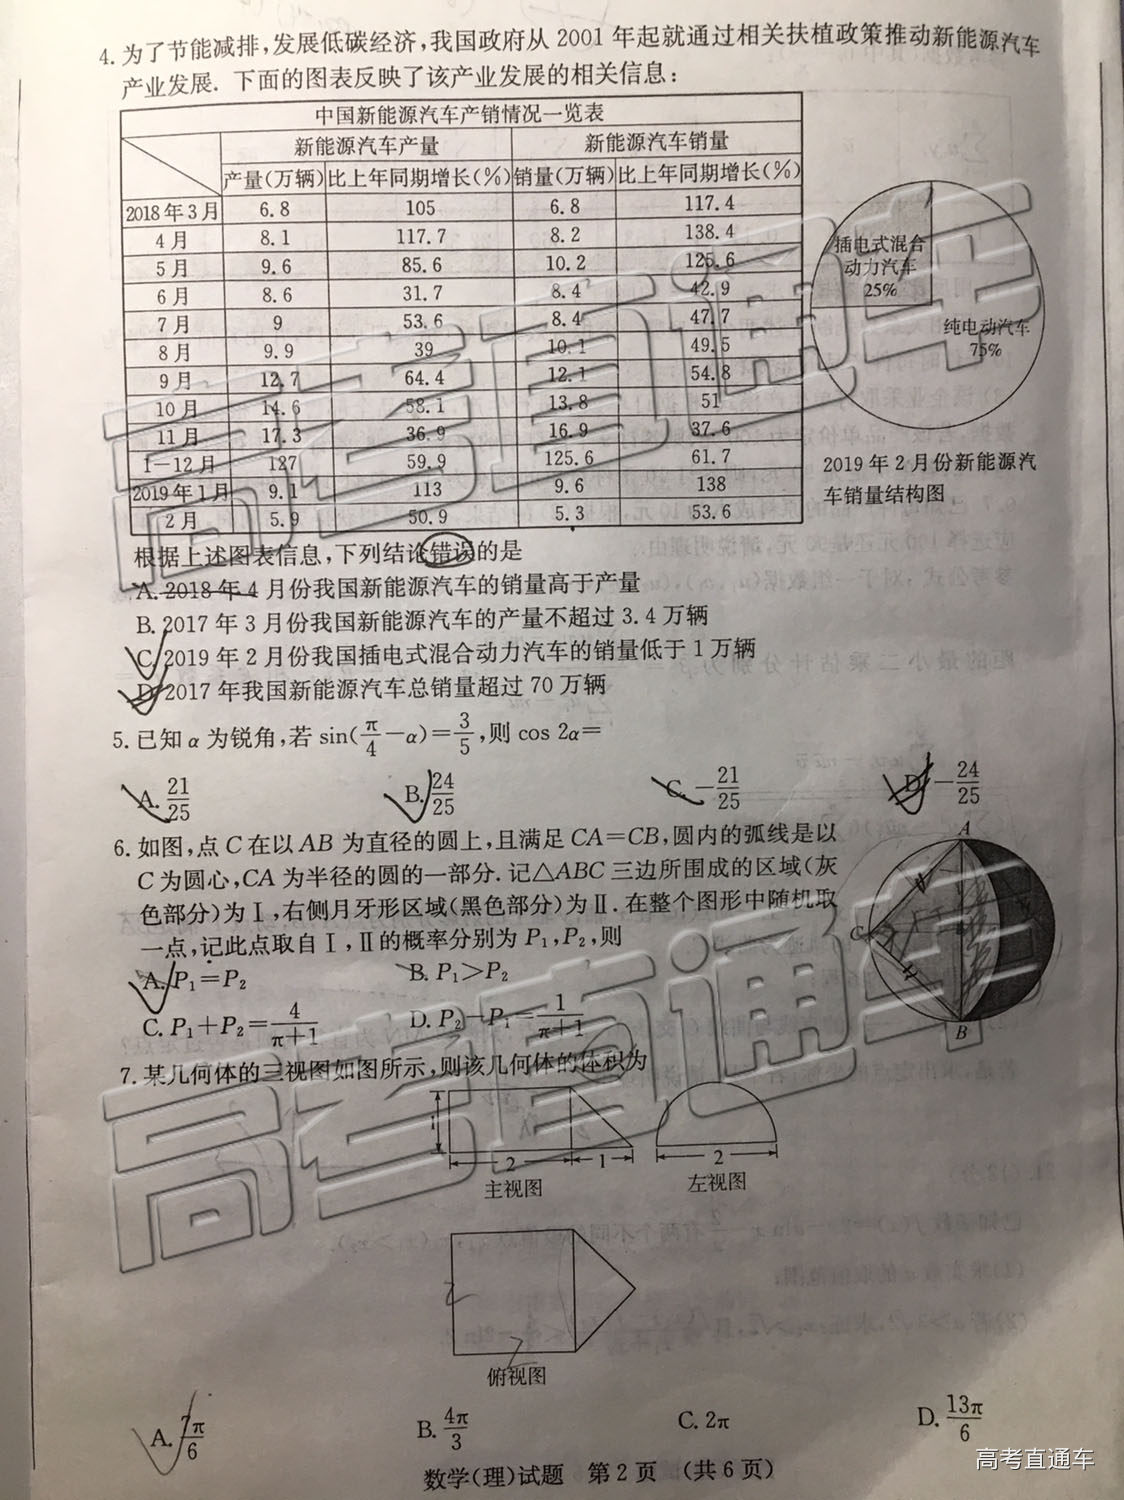 4.为了节能减排,发展低碳经济,我国政府从 2001 年起就通过相关扶植政策推动新能源汽车
产业发展. 下面的图表反映了该产业发展的相关信息:
中国新能源汽车产销情况一览表
新能源汽车产量 新能源汽车销量
产量(万辆) 比上年同期增长(%) 销量(万辆) 比上年同期增长(%)
2018 年 3 月 6.8 105 6.8 117.4
4 月 8.1 117.7 8.2 138.4
5 月 9.6 85.6 10.2 125.6
6 月 8.6 31.7 8.4 42.9
7 月 9 53.6 8.4 47.7
8 月 9.9 39 10.1 49.5
9 月 12.7 64.4 12.1 54.8
10 月 14.6 58.1 13.8 51
11 月 17.3 36.9 16.9 37.6
1－12 月 127 59.9 125.6 61.7
2019 年 1 月 9.1 113 9.6 138
2 月 5.9 50.9 5.3 53.6
插电式混合
动力汽车
25%
纯电动汽车
75%
2019 年 2 月份新能源汽
车销量结构图
根据上述图表信息,下列结论错误的是
A. 2018 年 4 月份我国新能源汽车的销量高于产量
B. 2017 年 3 月份我国新能源汽车的产量不超过 3.4 万辆
C. 2019 年 2 月份我国插电式混合动力汽车的销量低于 1 万辆
D. 2017 年我国新能源汽车总销量超过 70 万辆
5. 已知 α 为锐角,若 sin(π/4－α)＝3/5,则 cos 2α＝
A. 21/25 B. 24/25 C. －21/25 D. －24/25
6. 如图,点 C 在以 AB 为直径的圆上,且满足 CA＝CB,圆内的弧线是以
C 为圆心,CA 为半径的圆的一部分. 记△ABC 三边所围成的区域(灰
色部分)为Ⅰ,右侧月牙形区域(黑色部分)为Ⅱ. 在整个图形中随机取
一点,记此点取自Ⅰ,Ⅱ的概率分别为 P₁,P₂,则
A. P₁＝P₂ B. P₁>P₂
C. P₁＋P₂＝4/(π＋1) D. P₂－P₁＝1/(π＋1)
A
C
B
7. 某几何体的三视图如图所示,则该几何体的体积为
1
2 1 2
主视图 左视图
2
2
俯视图
A. 7π/6 B. 4π/3 C. 2π D. 13π/6
数学(理)试题 第 2 页 (共 6 页)
高考直通车
高考直通车
高考直通车